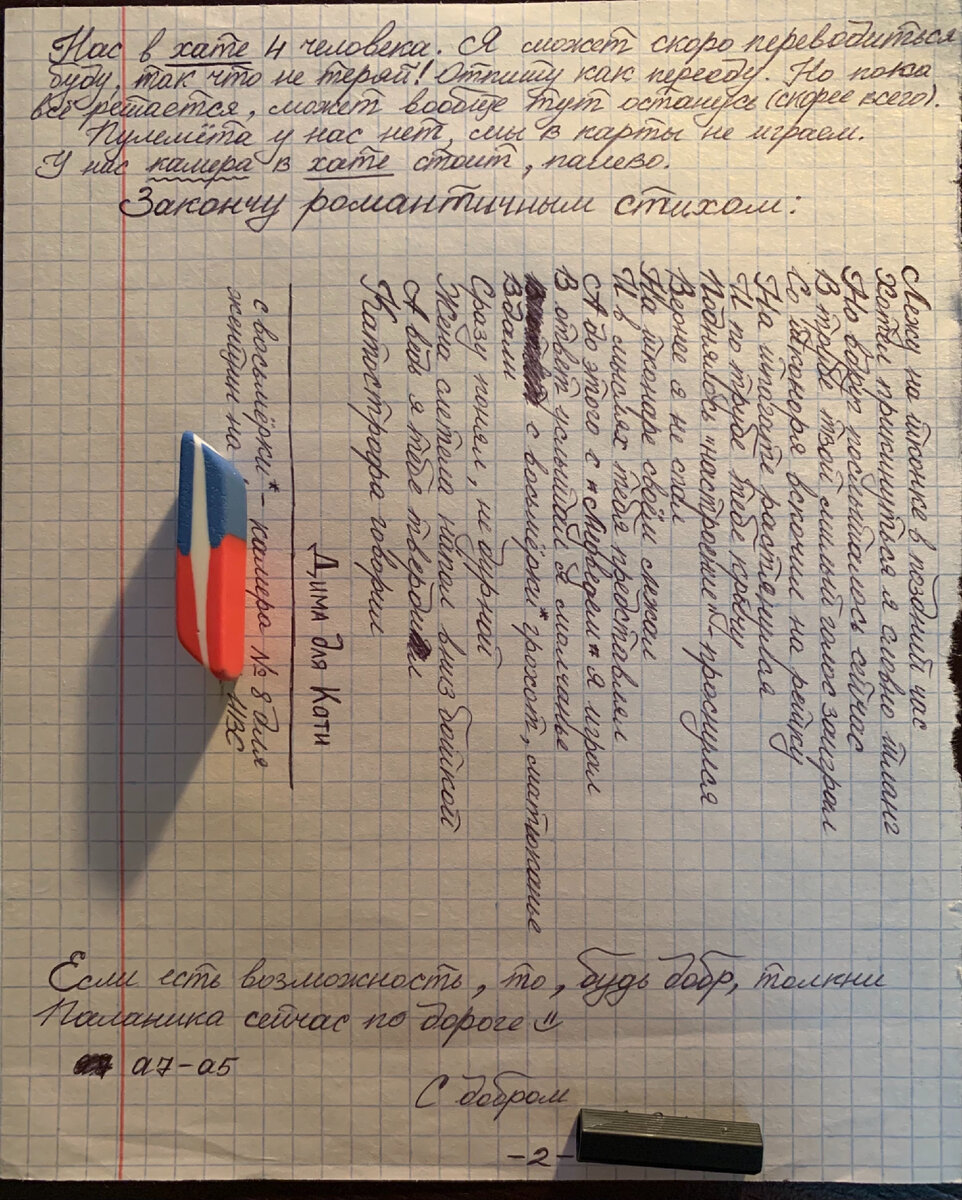 Нас в хате 4 человека. Я может скоро переводиться
буду, так что не теряй! Отпишу как перееду. Но пока
всё решается, может вообще тут останусь (скорее всего).
Пулемёта у нас нет, мы в карты не играем.
У нас камера в хате стоит, палево.
Закончу романтичным стихом:
Лежу на шконке в поздний час
Хотел прикинуться я словно шланг
Но вдруг послышалось сейчас
В трубе твой милый голос заиграл
Со шконоря вскочил на рейку
На шпагате растянулая
И по трубе тебе кричу
Поднялось "настроение" - проснулая
Вернее я не спал
На шконаре своём лежал
И в мыслях тебя представлял
А до этого с "Мурведем" я играл
В ответ услышал я молчанье
с восьмёрки* грохот, матюканье
Вдали
Сразу понял, не дурной
Жена слетела на пол вниз башкой
А ведь я тебе твердил
Катострофа говорил
Дима для Кати
с восьмёрки* - камера № 8 для
женщин на ИВС
Если есть возможность, то, будь добр, толкни
Паланика сейчас по дороге
а7-а5
С добром
-2-